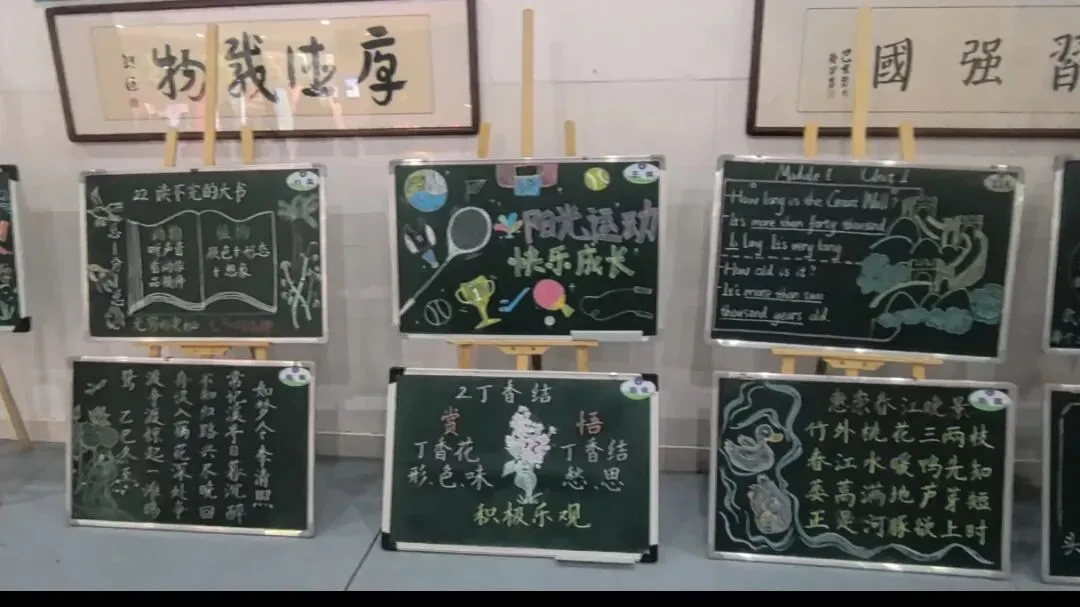 厚德载物
習强國
22 读不完的大书
动物
听声音
看动作
品情件
植物
颜色+形态
+想象
阳光运动
快乐成长
Module 1 Unit 1
How long is the Great Wall?
It's more than forty thousand
li long. It's very long.
How old is it?
It's more than two
thousand years old.
如梦令 李清照
常记溪亭日暮沉醉
不知归路兴尽晚回
舟误入藕花深处争
渡争渡惊起一滩鸥
鹭 乙巳冬
2 丁香结
赏
丁香花
形.色.味
悟
丁香结
愁.思
积极乐观
惠崇春江晚景
竹外桃花三两枝
春江水暖鸭先知
蒌蒿满地芦芽短
正是河豚欲上时
头